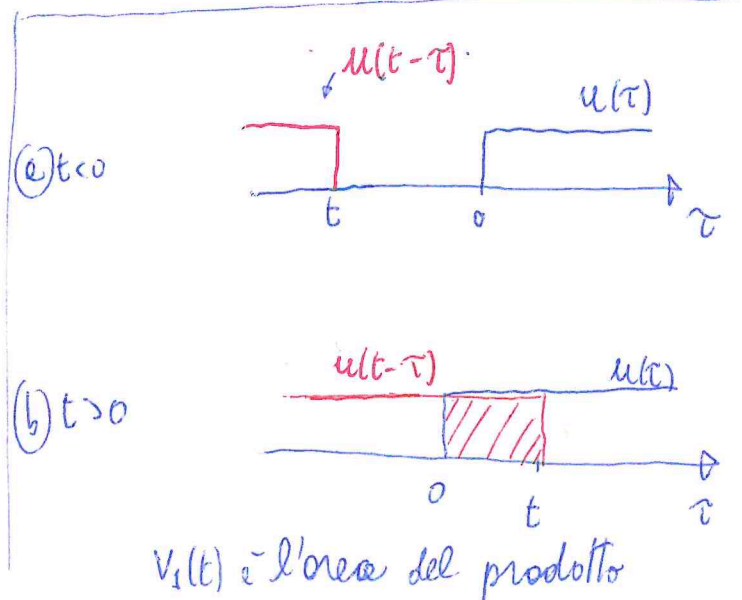 u(t-τ)
u(τ)
ⓐ t<0
t 0 τ
u(t-τ) u(τ)
ⓑ t>0
0 t τ
V₁(t) è l'area del prodotto